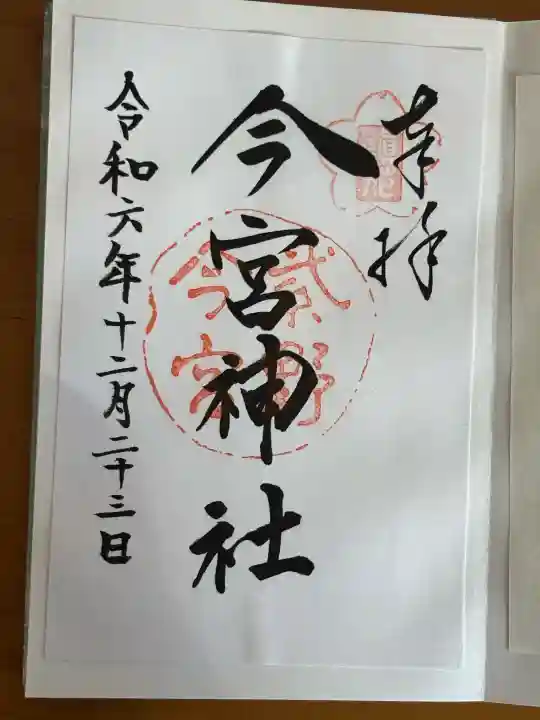 奉拝
今宮神社
紫野
今宮
令和六年十二月二十三日